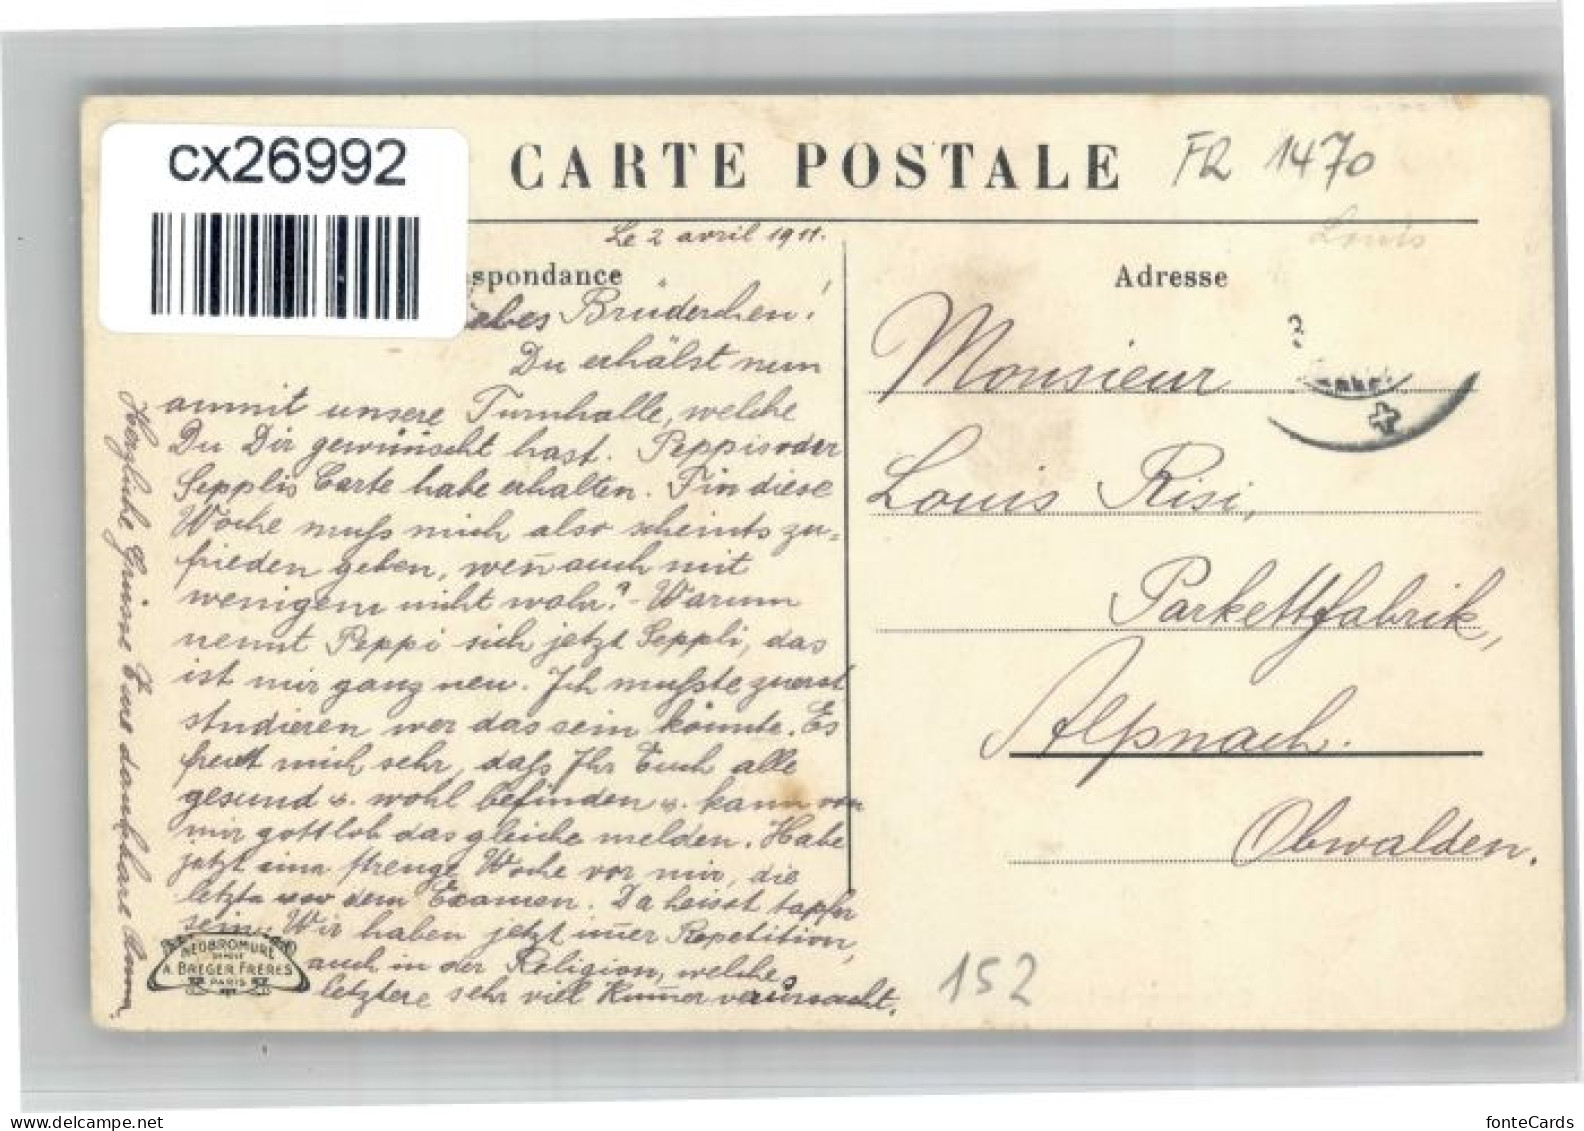 cx26992
CARTE POSTALE
FR 1470
Louis
Le 2 avril 1911.
spondance
Adresse
iebes Brüderchen!
Du erhälst nun
anmit unsere Turnhalle, welche
Du Dir gewünscht hast. Peppis oder
Sepplis Carte habe erhalten. Fin diese
Woche muss mich also scheints zu=
frieden geben, weñ auch mit
wenigem nicht wahr? - Warum
nennt Peppi sich jetzt Seppli, das
ist mir ganz neu. Ich musste zuerst
studieren wer das sein könnte. Es
freut mich sehr, dass Ihr Euch alle
gesund u. wohl befinden u. kann von
mir gottlob das gleiche melden. Habe
jetzt eine strenge Woche vor mir, die
letzte vor dem Examen. Da heisst tapfer
sein. Wir haben jetzt im̃er Repetition,
auch in der Religion, welches
letztere sehr viel Kum̃er verursacht.
Herzliche Grüsse Eure dankbare
Monsieur
Louis Risi,
Parkettfabrik,
Alpnach.
Obwalden.
NEOBROMURE
A. BREGER FRÈRES
PARIS
152
www.delcampe.net
fonteCards